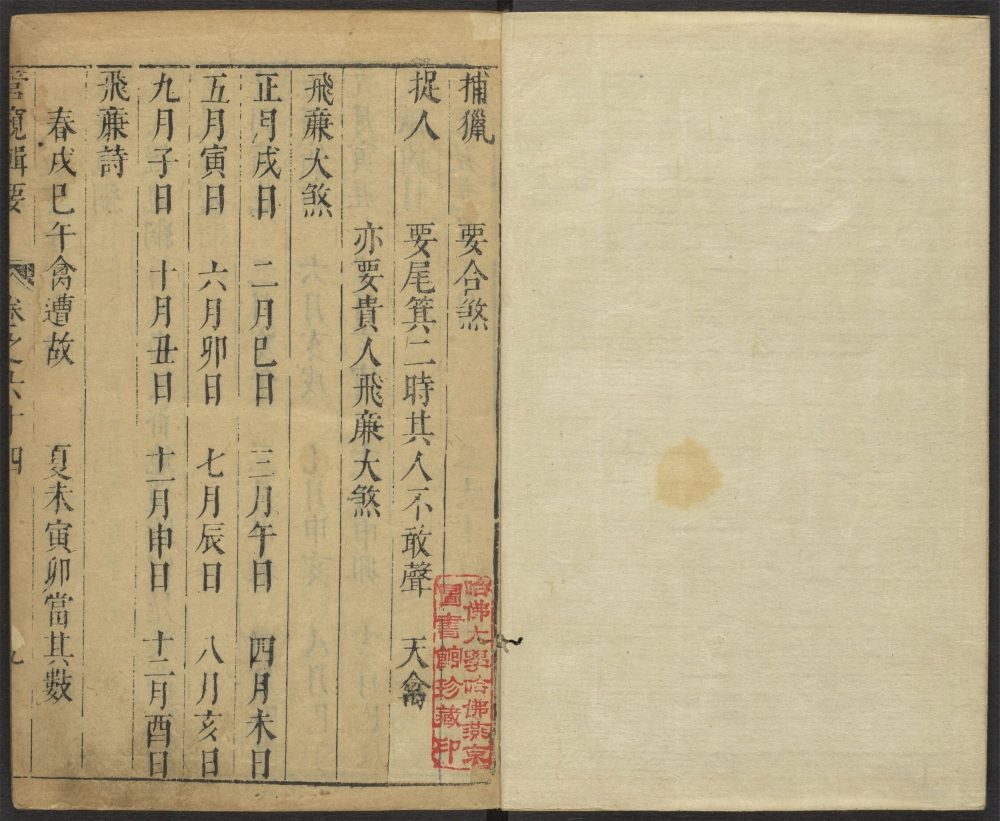 捕獵 要合煞
捉人 要尾箕二時其人不敢聲 天禽
亦要貴人飛廉大煞
飛廉大煞
正月戌日 二月巳日 三月午日 四月未日
五月寅日 六月卯日 七月辰日 八月亥日
九月子日 十月丑日 十一月申日 十二月酉日
飛廉詩
春戌巳午禽遭故 夏未寅卯當其數
管窺輯要 卷之六十四 九
哈佛大學哈佛燕京
圖書館珍藏印